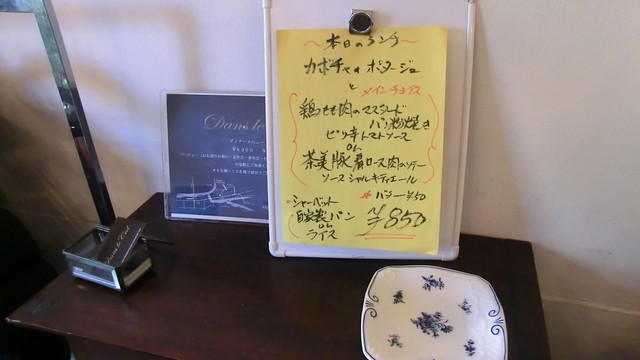 ～本日のランチ～
カボチャのポタージュ
と
メインチョイス
鶏もも肉のマスタード
パン粉焼き
ピリ辛トマトソース
or
茶美豚肩ロース肉のソテー
ソースシャルキティエール
シャーベット
自家製パン
or
ライス
※バター¥50
¥850
Dans le
ディナーメニュー